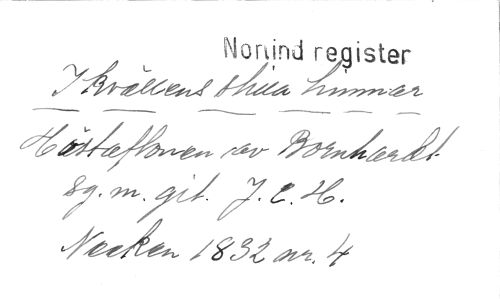 Norlind register
I kvällens stilla timmar
Höstaftonen av Bornhardt.
Sg. m. git. J. C. H.
Necken 1832 nr. 4